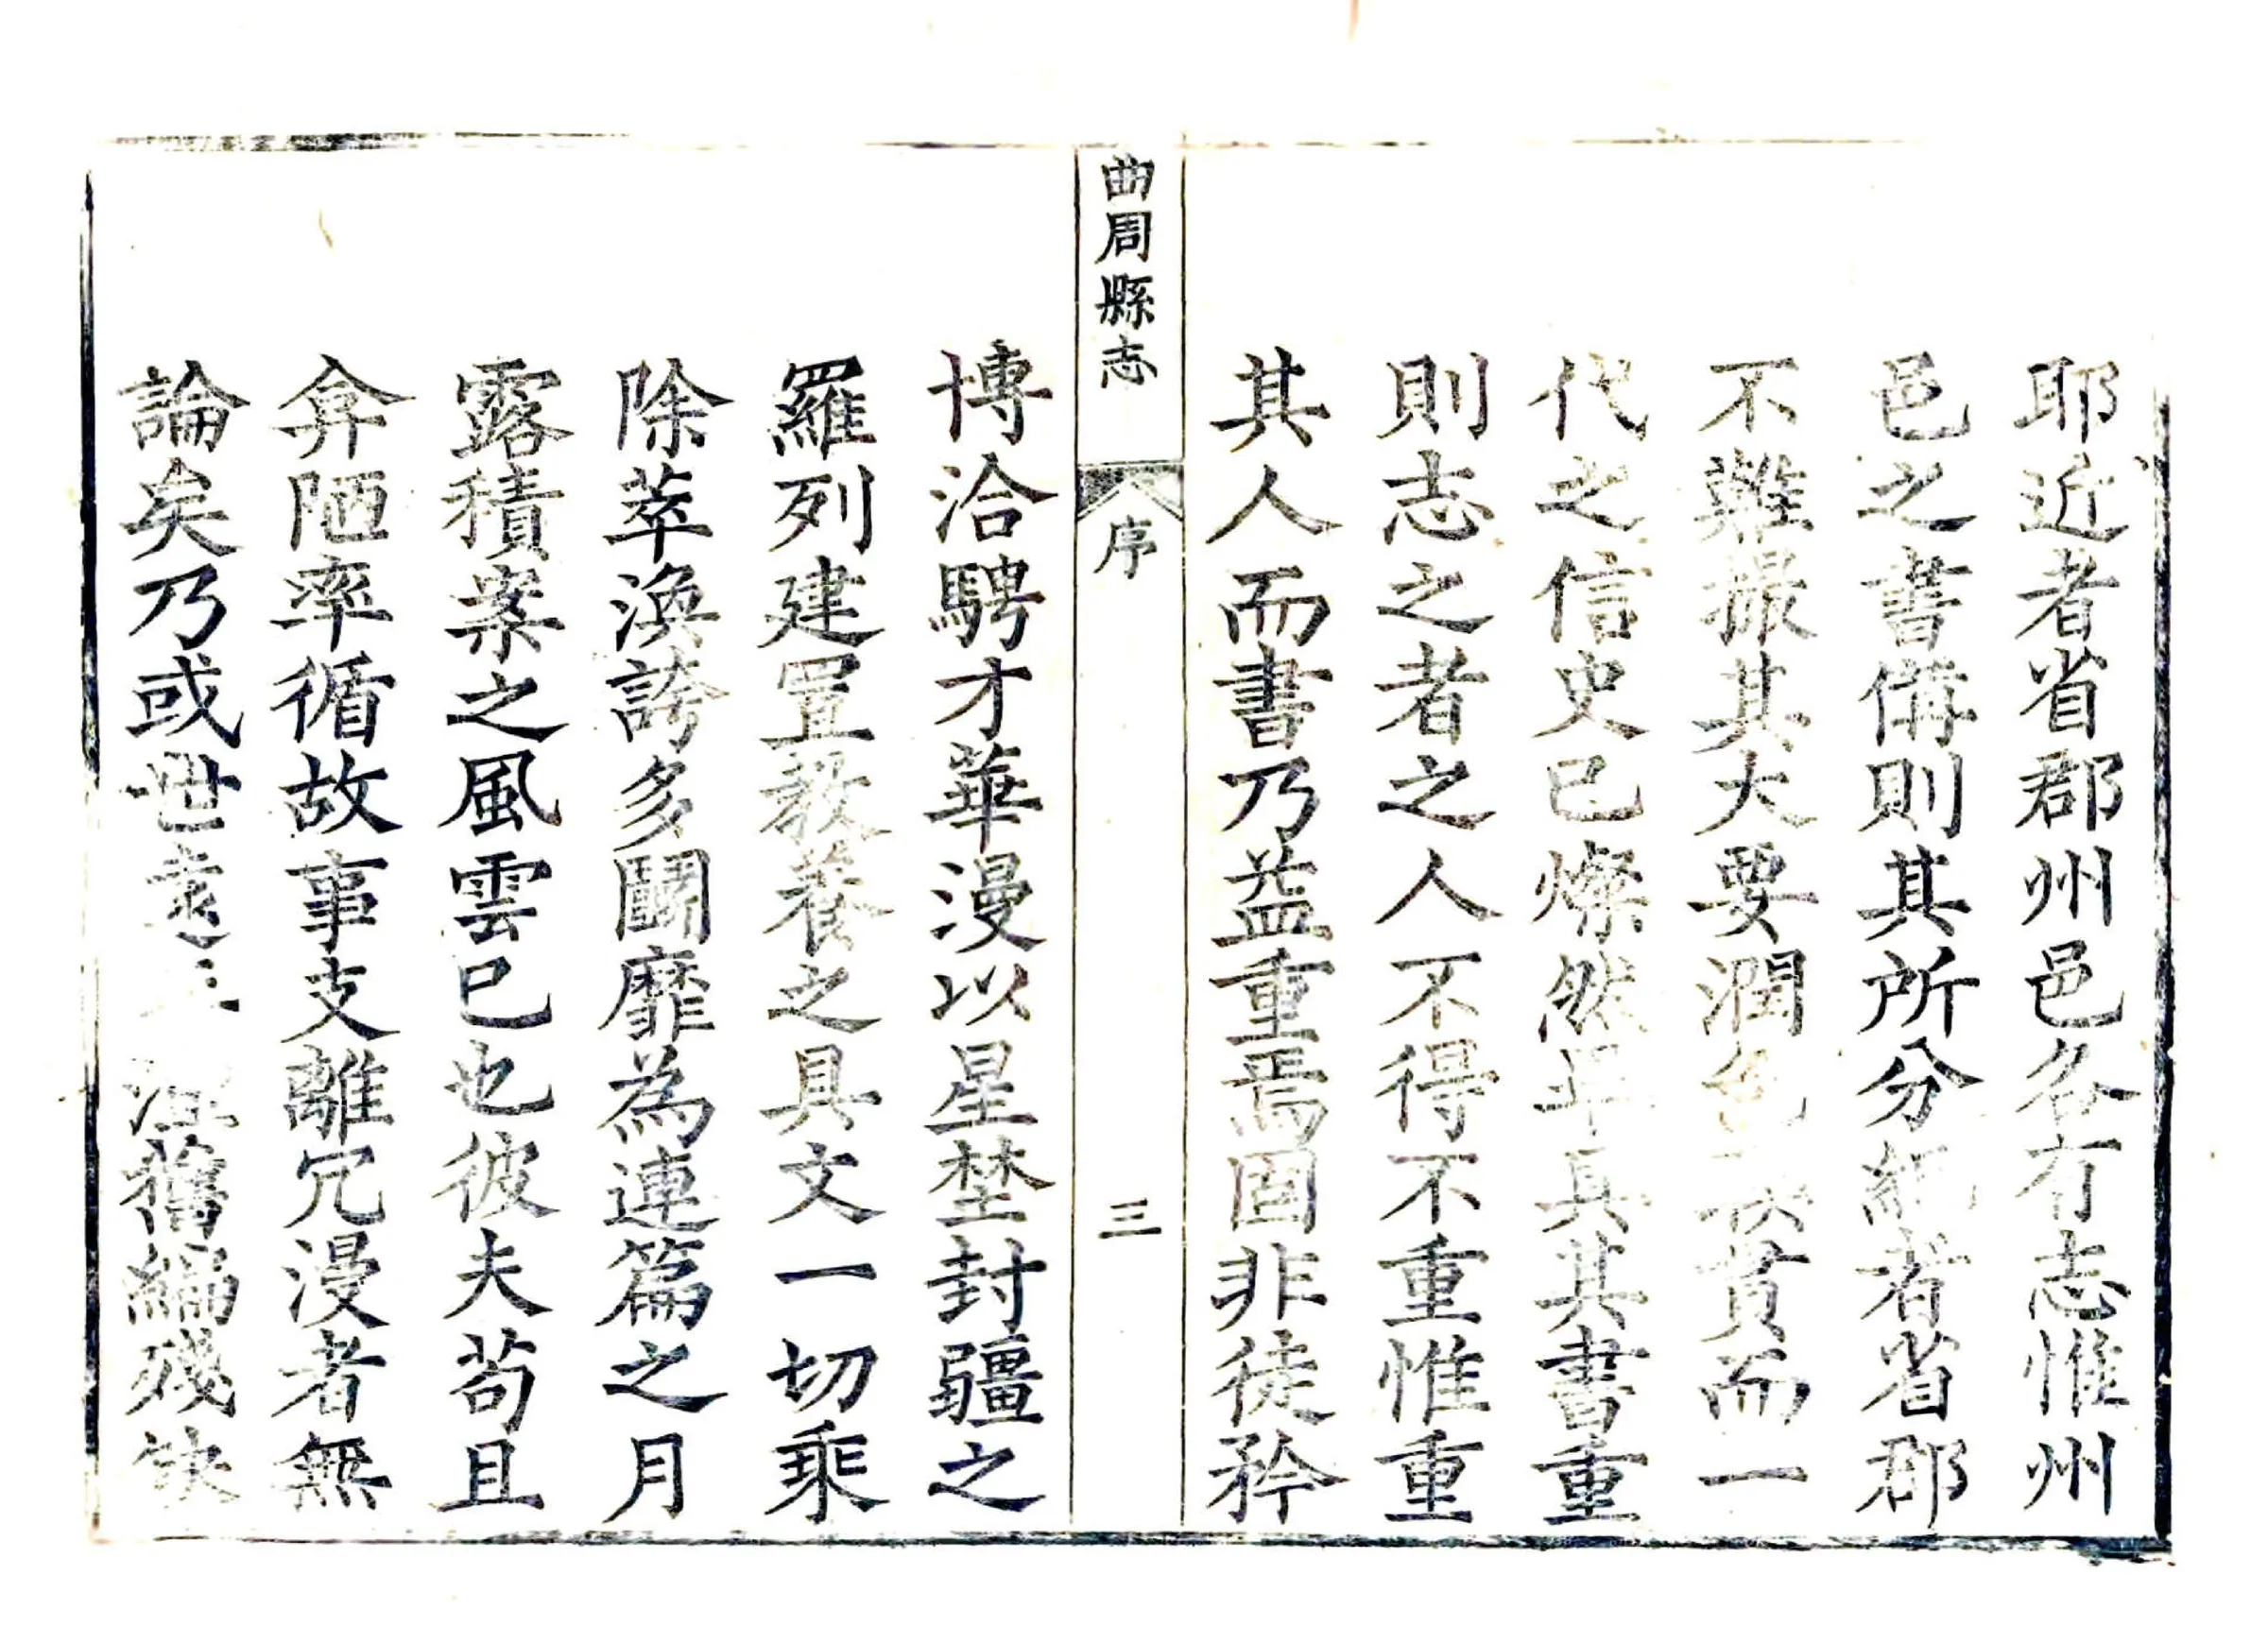 耶近者省郡州邑各有志惟州
邑之書備則其所分紀者省郡
不難撮其大要潤色貫而一
代之信史已燦然具其書重
則志之者之人不得不重惟重
其人而書乃益重焉固非徒矜
曲周縣志 序 三
博洽騁才華漫以星埜封疆之
羅列建置教養之具文一切乘
除萃渙誇多鬭靡為連篇之月
露積案之風雲已也彼夫苟且
弇陋率循故事支離冗漫者無
論矣乃或世遠舊編殘缺